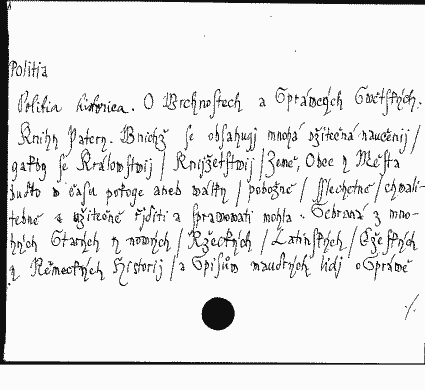 Politia
Politia historica. O Wrchnostech a Spráwcých Swětských.
Knihy Patery. W nichž se obsahugj mnohá vžitečná naučenij /
gakby se Králowstwij / Knijžetstwij / Země, Obec y Města
buďto w času pokoge aneb walky / pobožně / sslechetně / chwali-
tebně a vžitečně řjditi a sprawowati mohla. Sebraná z mno-
hých Starých y nowých / Ržeckých / Latinských / Cžeských
y Německých Historij / a Spisůw maudrých lidj o Spráwě
./.